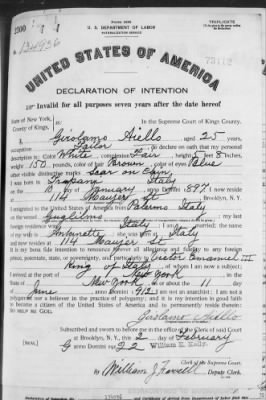 Form 2202
U. S. DEPARTMENT OF LABOR
NATURALIZATION SERVICE
TRIPLICATE
1300
134936
73112
UNITED STATES OF AMERICA
DECLARATION OF INTENTION
Invalid for all purposes seven years after the date hereof
State of New York,
County of Kings,
In the Supreme Court of Kings County.
I, Girolamo Aiello aged 25 years,
occupation Tailor, do declare on oath that my personal
description is: Color White, complexion Fair, height 5 feet 8 inches,
weight 150 pounds, color of hair Brown, color of eyes Blue
other visible distinctive marks Scar on Chin
I was born in Trapani Italy
on the 13 day of January, anno Domini 1897; I now reside
at 114 Maujer St., Brooklyn, N.Y.
I emigrated to the United States of America from Palermo Italy
on the vessel Guglielmo; my last
foreign residence was Italy; I am married; the name
of my wife is Antoinette; she was born in Italy
and now resides at 114 Maujer St.
It is my bona fide intention to renounce forever all allegiance and fidelity to any foreign
prince, potentate, state, or sovereignty, and particularly to Victor Emanuel III
King of Italy, of whom I am now a subject;
I arrived at the port of New York, in the
State of New York, on or about the 11 day
of June, anno Domini 1912; I am not an anarchist; I am not a
polygamist nor a believer in the practice of polygamy; and it is my intention in good faith
to become a citizen of the United States of America and to permanently reside therein:
SO HELP ME GOD.
Girolamo Aiello
Subscribed and sworn to before me in the office of the Clerk of said Court
at Brooklyn, N.Y., this 2 day of February
anno Domini 1922
[SEAL]
William E. Kelly
Clerk of the Supreme Court.
By William J. , Deputy Clerk.